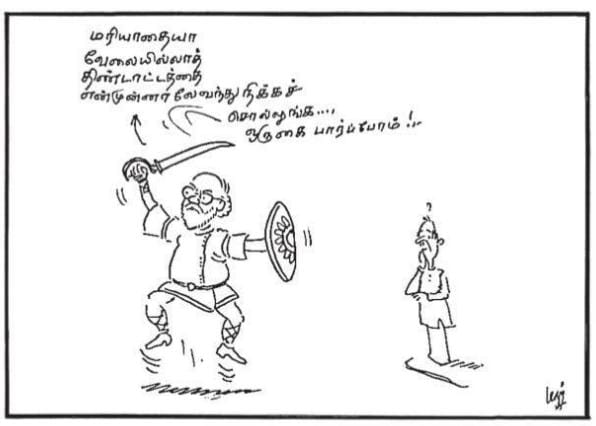 மரியாதையா
வேலையில்லாத்
திண்டாட்டத்தை
என்முன்னாலேவந்து நிக்கச்
சொல்லுங்க....,
ஒருகை பார்ப்போம்!
?